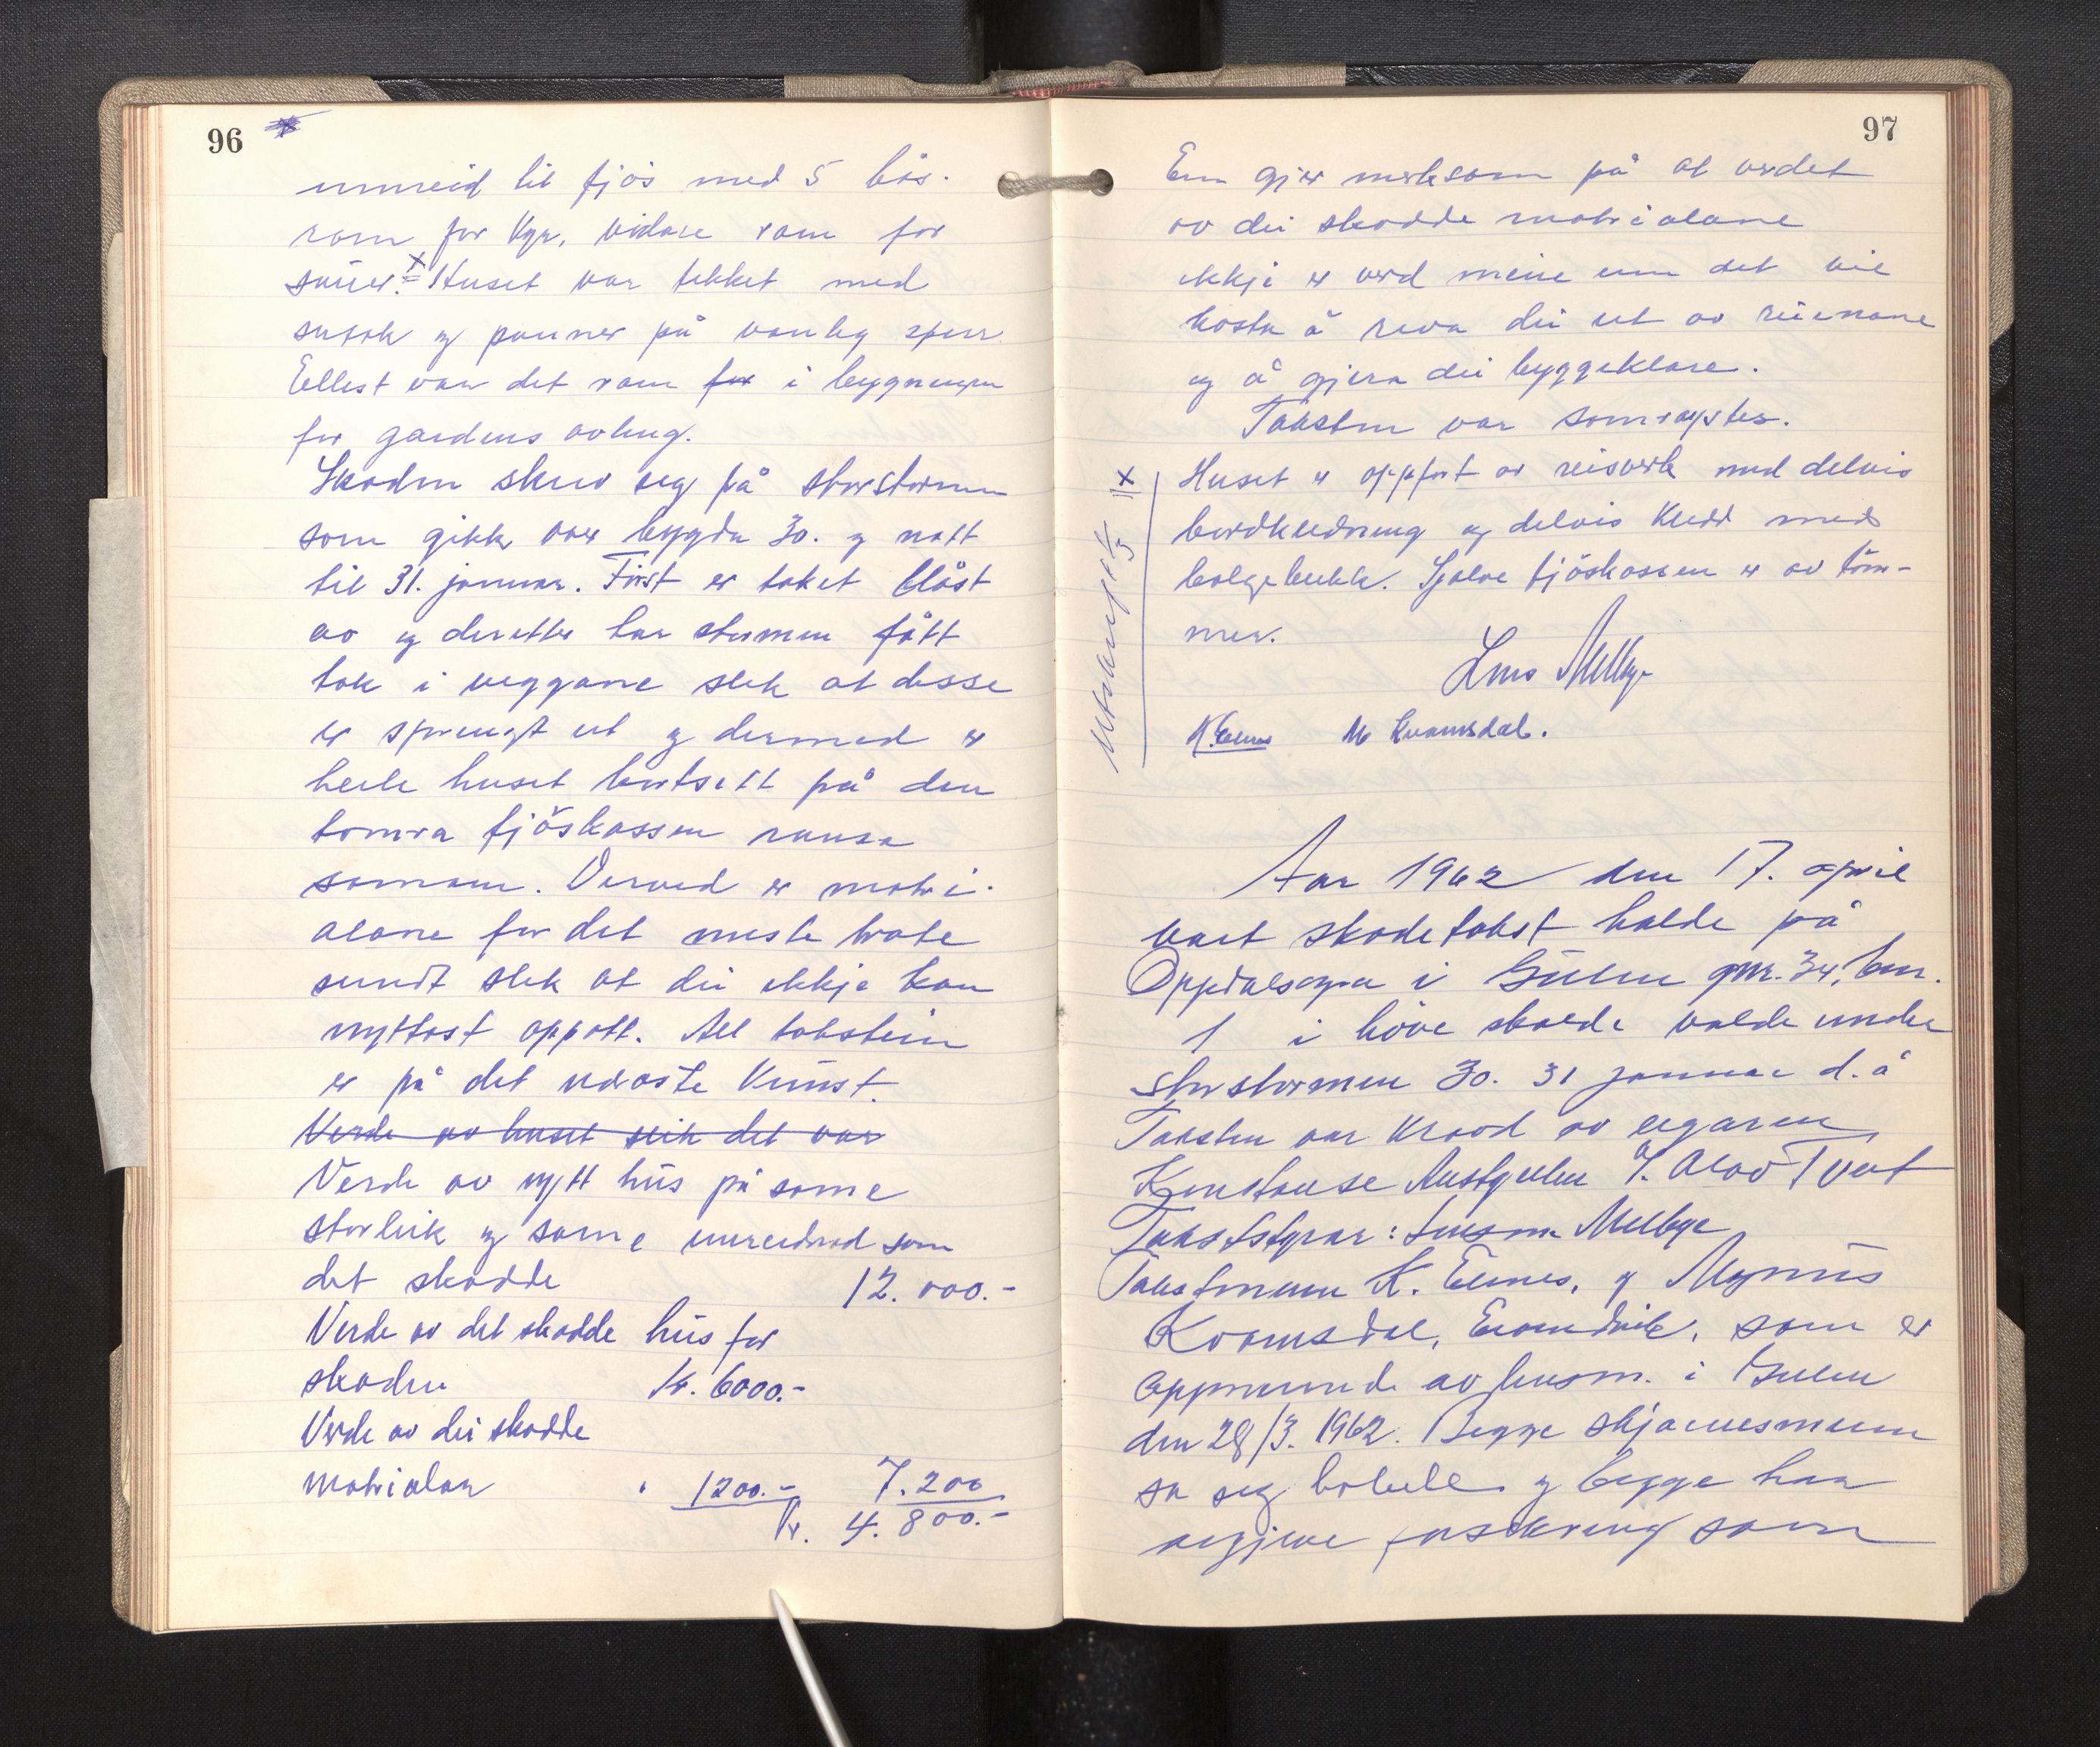 96
innreid til fjös med 5 bås-
rom for kyr, vidare rom for
sauer. x Huset var tekket med
sutak og panner på vanleg sperr.
Ellest var det rom for i bygningen
for gardens avling.
Skaden skriv seg på storstormen
som gikk over bygda 30. og natt
til 31. januar. Først er taket blåst
av og deretter har stormen fått
tak i veggane slik at desse
er sprengt ut og dermed er
heile huset bortsett på den
tomra fjöskassen rausa
saman. Derved er matri-
alane for det meste brote
sundt slik at dei ikkje kan
nyttast oppatt. All takstein
er på det næraste knust.
Verde av huset slik det var
Verde av nytt hus på same
storleik og same innreidnad som
det skadde 12.000.-
Verde av det skadde hus för
skaden kr. 6000.-
Verde av dei skadde
matrialar " 1200.- 7.200
Kr. 4.800.-
97
Ein gjer merksam på at verdet
av dei skadde matrialane
ikkje er verd meire enn det vil
kosta å riva dei ut av ruinane
og å gjera dei byggeklare.
Taksten var samrøystes.
x Huset er oppført av reisverk med delvis
bordkledning og delvis kledd med
bølgeblikk. Sjølve fjöskassen er av töm-
mer.
Utskrift 1/5
Lars Mellbye
K. Eimes M Kvamsdal.
Aar 1962 den 17. april
vart skadetakst halde på
Oppdalsøyra i Gulen gnr. 34, bnr.
1 i höve skade valde under
storstormen 30. 31 januar d.å
Taksten var kravd av eigaren
Konstanse Austgulen v/ Olav Tveit
Takststyrar: lensm. Mellbye
Takstmenn K. Eimes, og Magnus
Kvamsdal, Eivindvik, som er
oppnemnde av lensm. i Gulen
den 28/3. 1962. Begge skjønnesmenn
sa seg habile og begge har
avgjeve forsikring som